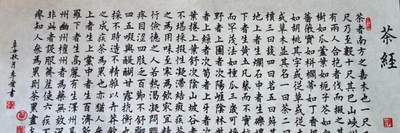 茶經
茶者南方之嘉木也一尺二
尺乃至數十尺其巴山峽川
有兩人合抱者伐而掇之其
樹如瓜蘆葉如梔子花如白
薔薇實如栟櫚蒂如丁香根
如胡桃其字或從草或從木
或草木並其名一曰茶二曰
檟三曰蔎四曰茗五曰荈其
地上者生爛石中者生櫟壤
下者生黃土凡藝而不實植
而罕茂法如種瓜三歲可採
野者上園者次陽崖陰林紫
者上綠者次筍者上牙者次
葉卷上葉舒次陰山坡谷者
不堪採掇性凝滯結瘕疾茶
之為用味至寒為飲最宜精
行儉德之人若熱渴凝悶腦
疼目澀四肢煩百節不舒聊
四五啜與醍醐甘露抗衡也
採不時造不精雜以卉莽飲
之成疾茶為累也亦猶人參
上者生上黨中者生百濟新
羅下者生高麗有生澤州易
州幽州檀州者為藥無效況
非此者設服薺苨使六疾不
瘳知人參為累則茶累盡矣
秋月李書